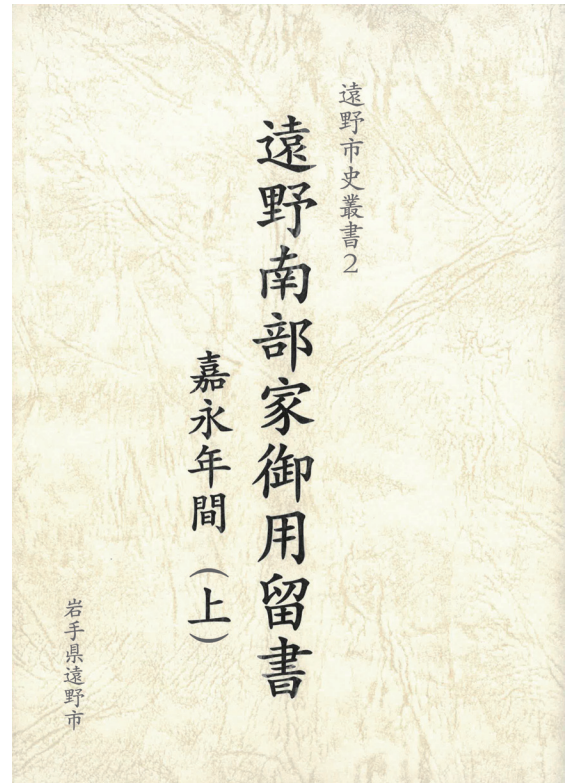 遠野市史叢書2
遠野南部家御用留書
嘉永年間(上)
岩手県遠野市